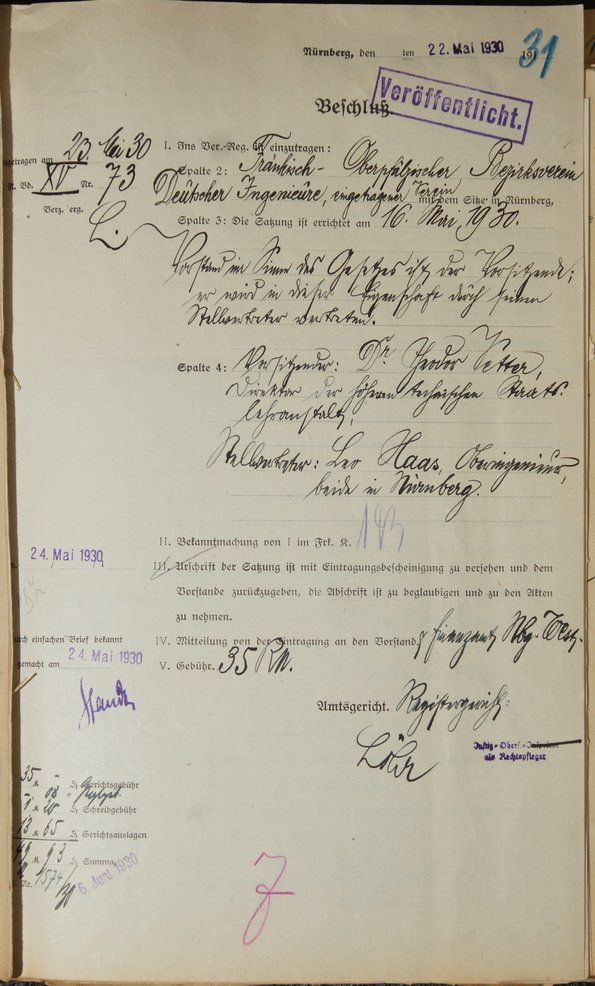 Nürnberg, den ten 22. Mai 1930 191
31
Beschluß.
Veröffentlicht.
ngetragen am 23. Mai 30
R. Bd. XV Nr. 73
Verz. erg.
L.
I. Ins Ver.-Reg. ist einzutragen:
Spalte 2: Fränkisch-Oberpfälzischer Bezirksverein
Deutscher Ingenieure, eingetragener Verein mit dem Sitze in Nürnberg,
Spalte 3: Die Satzung ist errichtet am 16. Mai 1930.
Vorstand im Sinne des Gesetzes ist der Vorsitzende;
er wird in dieser Eigenschaft durch seinen
Stellvertreter vertreten.
Spalte 4: Vorsitzender: Dr. Theodor Vetter,
Direktor der höheren technischen Staats-
lehranstalt,
Stellvertreter: Leo Haas, Oberingenieur,
beide in Nürnberg.
II. Bekanntmachung von I im Frk. K. 143
24. Mai 1930
III. Urschrift der Satzung ist mit Eintragungsbescheinigung zu versehen und dem
Vorstande zurückzugeben, die Abschrift ist zu beglaubigen und zu den Akten
zu nehmen.
IV. Mitteilung von der Eintragung an den Vorstand, Finanzamt Nbg.
durch einfachen Brief bekannt
gemacht am 24. Mai 1930
V. Gebühr. 35 RM.
Amtsgericht. Registergericht:
Löhr
Justiz-Obers.-Inspektor
als Rechtspfleger
35 M. - ₰ Gerichtsgebühr
M. 08 "
1 M. 20 ₰ Schreibgebühr
13 M. 65 ₰ Gerichtsauslagen
49 M. 93 ₰ Summa
Nr. 1574
6. Juni 1930